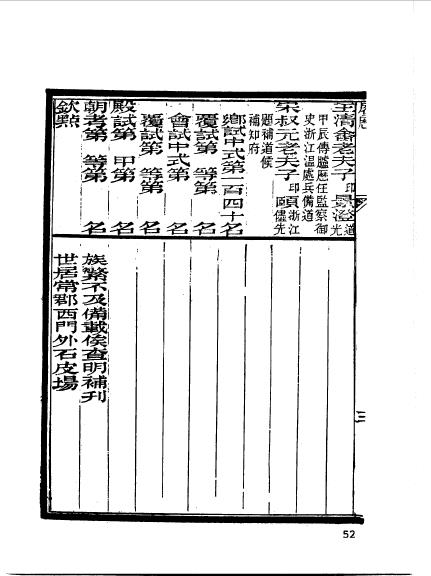 王清畬老夫子印景澄道光
甲辰傳臚歷任監察御
史浙江溫處兵備道
叔元老夫子印頤浙江儘先
題補道候
補知府
鄉試中式第一百四十名
覆試第 等第 名
會試中式第 名
覆試第 等第 名
殿試第 甲第 名
朝考第 等第 名
欽點
族繁不及備載俟查明補刊
世居常郡西門外石皮場
三
52